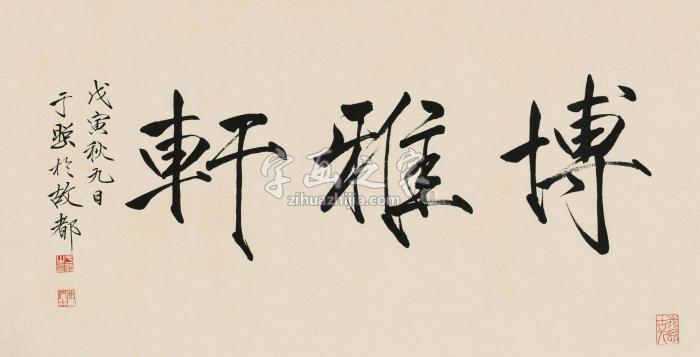 博雅軒
戊寅秋九日
于照於故都
字画之家
zihuazhijia.com